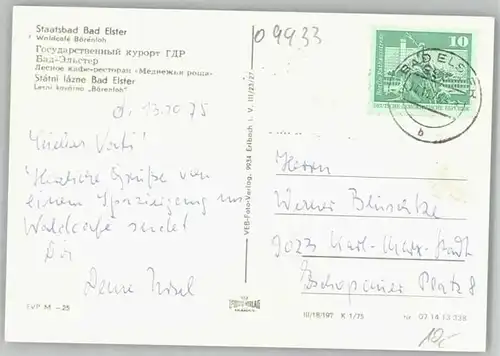 Staatsbad Bad Elster
Waldcafé Bärenloh
Государственный курорт ГДР
Бад-Эльстер
Лесное кафе-ресторан «Медвежья роща»
Státní lázne Bad Elster
Lesní kavárno „Bärenloh"
09933
10
BAD ELST
b
DEUTSCHE DEMOKRATISCHE REPUBLIK
d. 13.10.75
Lieber Vati!
Herzliche Grüße von
einem Spaziergang ins
Waldcafe sendet
Dir
Deine
VEB-Foto-Verlag, 9934 Erlbach i. V. III/23/27
Herrn
Werner
9023 Karl-Marx-Stadt
Zschopauer Platz 8
TVP M -25
III/18/197 K 1/75
07 14 13 338
10,-